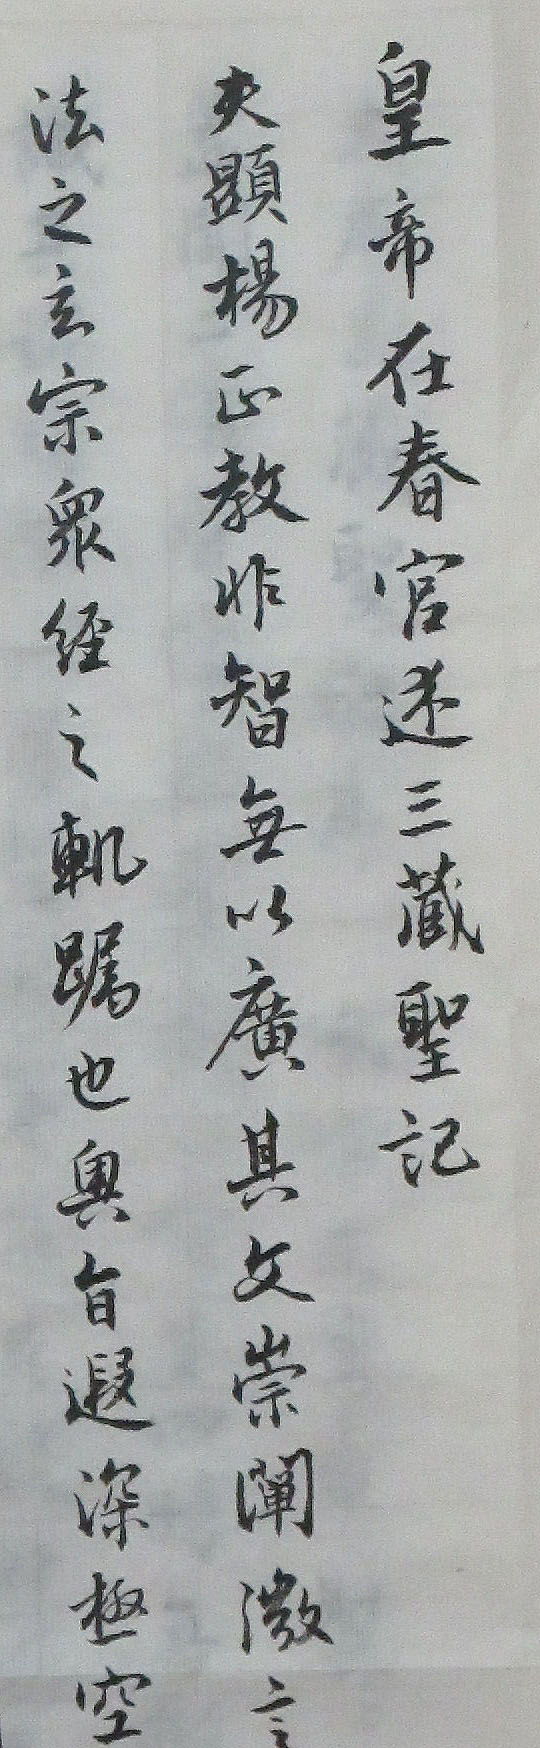 皇帝在春宮述三藏聖記
夫顯楊正教非智無以廣其文崇闡微言
法之玄宗眾經之軌躅也奧旨遐深極空